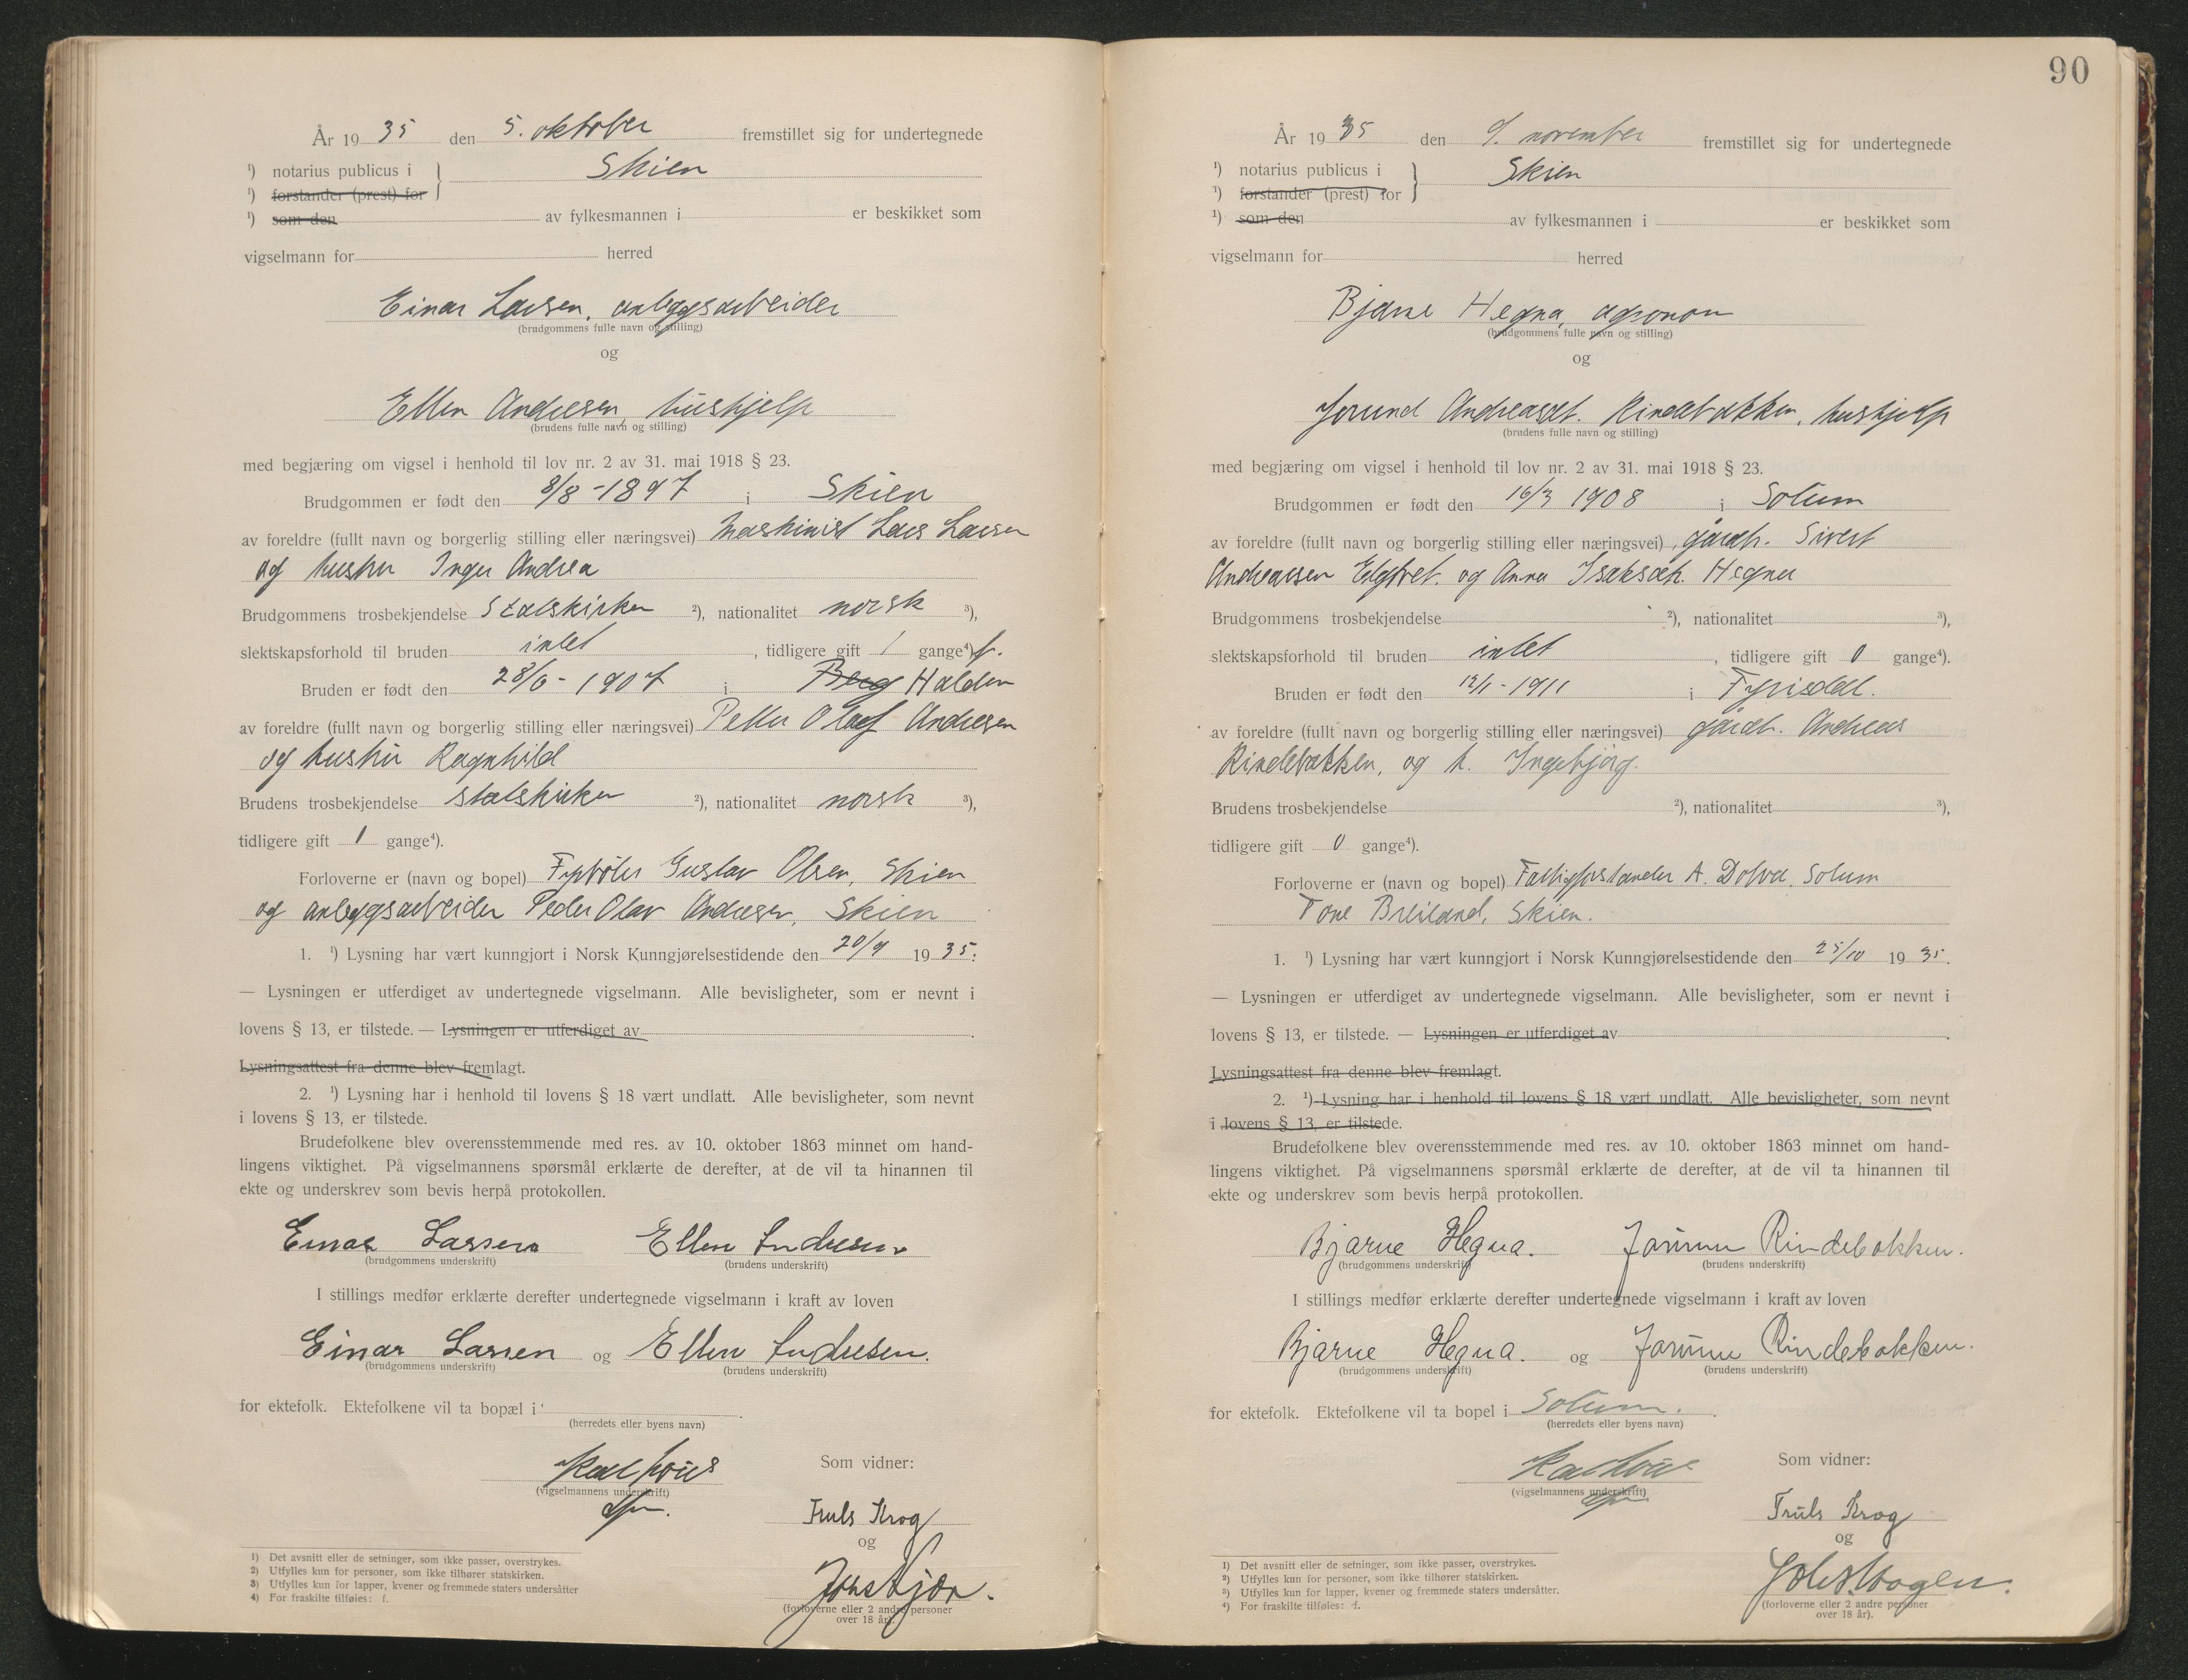 År 19 35 den 5. oktober fremstillet sig for undertegnede
¹) notarius publicus i } Skien
¹) forstander (prest) for
¹) som den av fylkesmannen i er beskikket som
vigselmann for herred
Einar Larsen, anleggsarbeider
(brudgommens fulle navn og stilling)
og
Ellen Andresen, hushjelp
(brudens fulle navn og stilling)
med begjæring om vigsel i henhold til lov nr. 2 av 31. mai 1918 § 23.
Brudgommen er født den 8/8 - 1897 i Skien
av foreldre (fullt navn og borgerlig stilling eller næringsvei) Maskinist Lars Larsen
og hustru Inger Andrea
Brudgommens trosbekjendelse Statskirken ²), nationalitet norsk ³),
slektskapsforhold til bruden intet , tidligere gift 1 gange⁴) f.
Bruden er født den 28/6 - 1907 i Berg Halden
av foreldre (fullt navn og borgerlig stilling eller næringsvei) Petter Olaf Andresen
og hustru Ragnhild
Brudens trosbekjendelse statskirken ²), nationalitet norsk ³),
tidligere gift 1 gange⁴).
Forloverne er (navn og bopel) Fyrbøter Gustav Olsen, Skien
og anleggsarbeider Peder Olav Andresen, Skien
1. ¹) Lysning har vært kunngjort i Norsk Kunngjørelsestidende den 20/9 19 35.
— Lysningen er utferdiget av undertegnede vigselmann. Alle bevisligheter, som er nevnt i
lovens § 13, er tilstede. — Lysningen er utferdiget av .
Lysningsattest fra denne blev fremlagt.
2. ¹) Lysning har i henhold til lovens § 18 vært undlatt. Alle bevisligheter, som nevnt
i lovens § 13, er tilstede.
Brudefolkene blev overensstemmende med res. av 10. oktober 1863 minnet om hand-
lingens viktighet. På vigselmannens spørsmål erklærte de derefter, at de vil ta hinannen til
ekte og underskrev som bevis herpå protokollen.
Einar Larsen Ellen Andresen
(brudgommens underskrift) (brudens underskrift)
I stillings medfør erklærte derefter undertegnede vigselmann i kraft av loven
Einar Larsen og Ellen Andresen.
(brudgommens underskrift) (brudens underskrift)
for ektefolk. Ektefolkene vil ta bopæl i .
(herredets eller byens navn)
Som vidner:
(vigselmannens underskrift)
Truls Krog
og
(forloverne eller 2 andre personer
over 18 år).
1) Det avsnitt eller de setninger, som ikke passer, overstrykes.
2) Utfylles kun for personer, som ikke tilhører statskirken.
3) Utfylles kun for lapper, kvener og fremmede staters undersåtter
4) For fraskilte tilføies: f.
90
År 19 35 den 9. november fremstillet sig for undertegnede
¹) notarius publicus i } Skien
¹) forstander (prest) for
¹) som den av fylkesmannen i er beskikket som
vigselmann for herred
Bjarne Hegna, agronom
(brudgommens fulle navn og stilling)
og
Jorund Andreasdt. Rindebakken, hushjelp
(brudens fulle navn og stilling)
med begjæring om vigsel i henhold til lov nr. 2 av 31. mai 1918 § 23.
Brudgommen er født den 16/3 1908 i Solum
av foreldre (fullt navn og borgerlig stilling eller næringsvei) gårdbr. Sivert
Andreassen og Anna Isaksdt. Hegna
Brudgommens trosbekjendelse ²), nationalitet ³),
slektskapsforhold til bruden intet , tidligere gift 0 gange⁴).
Bruden er født den 12/1 - 1911 i Fyrisdal.
av foreldre (fullt navn og borgerlig stilling eller næringsvei) gårdbr. Andreas
Rindebakken, og h. Ingebjørg.
Brudens trosbekjendelse ²), nationalitet ³),
tidligere gift 0 gange⁴).
Forloverne er (navn og bopel) Fattigforstander A. Dolva, Solum
Tone Breiland, Skien.
1. ¹) Lysning har vært kunngjort i Norsk Kunngjørelsestidende den 25/10 19 35.
— Lysningen er utferdiget av undertegnede vigselmann. Alle bevisligheter, som er nevnt i
lovens § 13, er tilstede. — Lysningen er utferdiget av .
Lysningsattest fra denne blev fremlagt.
2. ¹) Lysning har i henhold til lovens § 18 vært undlatt. Alle bevisligheter, som nevnt
i lovens § 13, er tilstede.
Brudefolkene blev overensstemmende med res. av 10. oktober 1863 minnet om hand-
lingens viktighet. På vigselmannens spørsmål erklærte de derefter, at de vil ta hinannen til
ekte og underskrev som bevis herpå protokollen.
Bjarne Hegna. Jorunn Rindebakken.
(brudgommens underskrift) (brudens underskrift)
I stillings medfør erklærte derefter undertegnede vigselmann i kraft av loven
Bjarne Hegna. og Jorunn Rindebakken.
(brudgommens underskrift) (brudens underskrift)
for ektefolk. Ektefolkene vil ta bopel i Solum.
(herredets eller byens navn)
Som vidner:
(vigselmannens underskrift)
Truls Krog
og
(forloverne eller 2 andre personer
over 18 år).
1) Det avsnitt eller de setninger, som ikke passer, overstrykes.
2) Utfylles kun for personer, som ikke tilhører statskirken.
3) Utfylles kun for lapper, kvener og fremmede staters undersåtter.
4) For fraskilte tilføies: f.